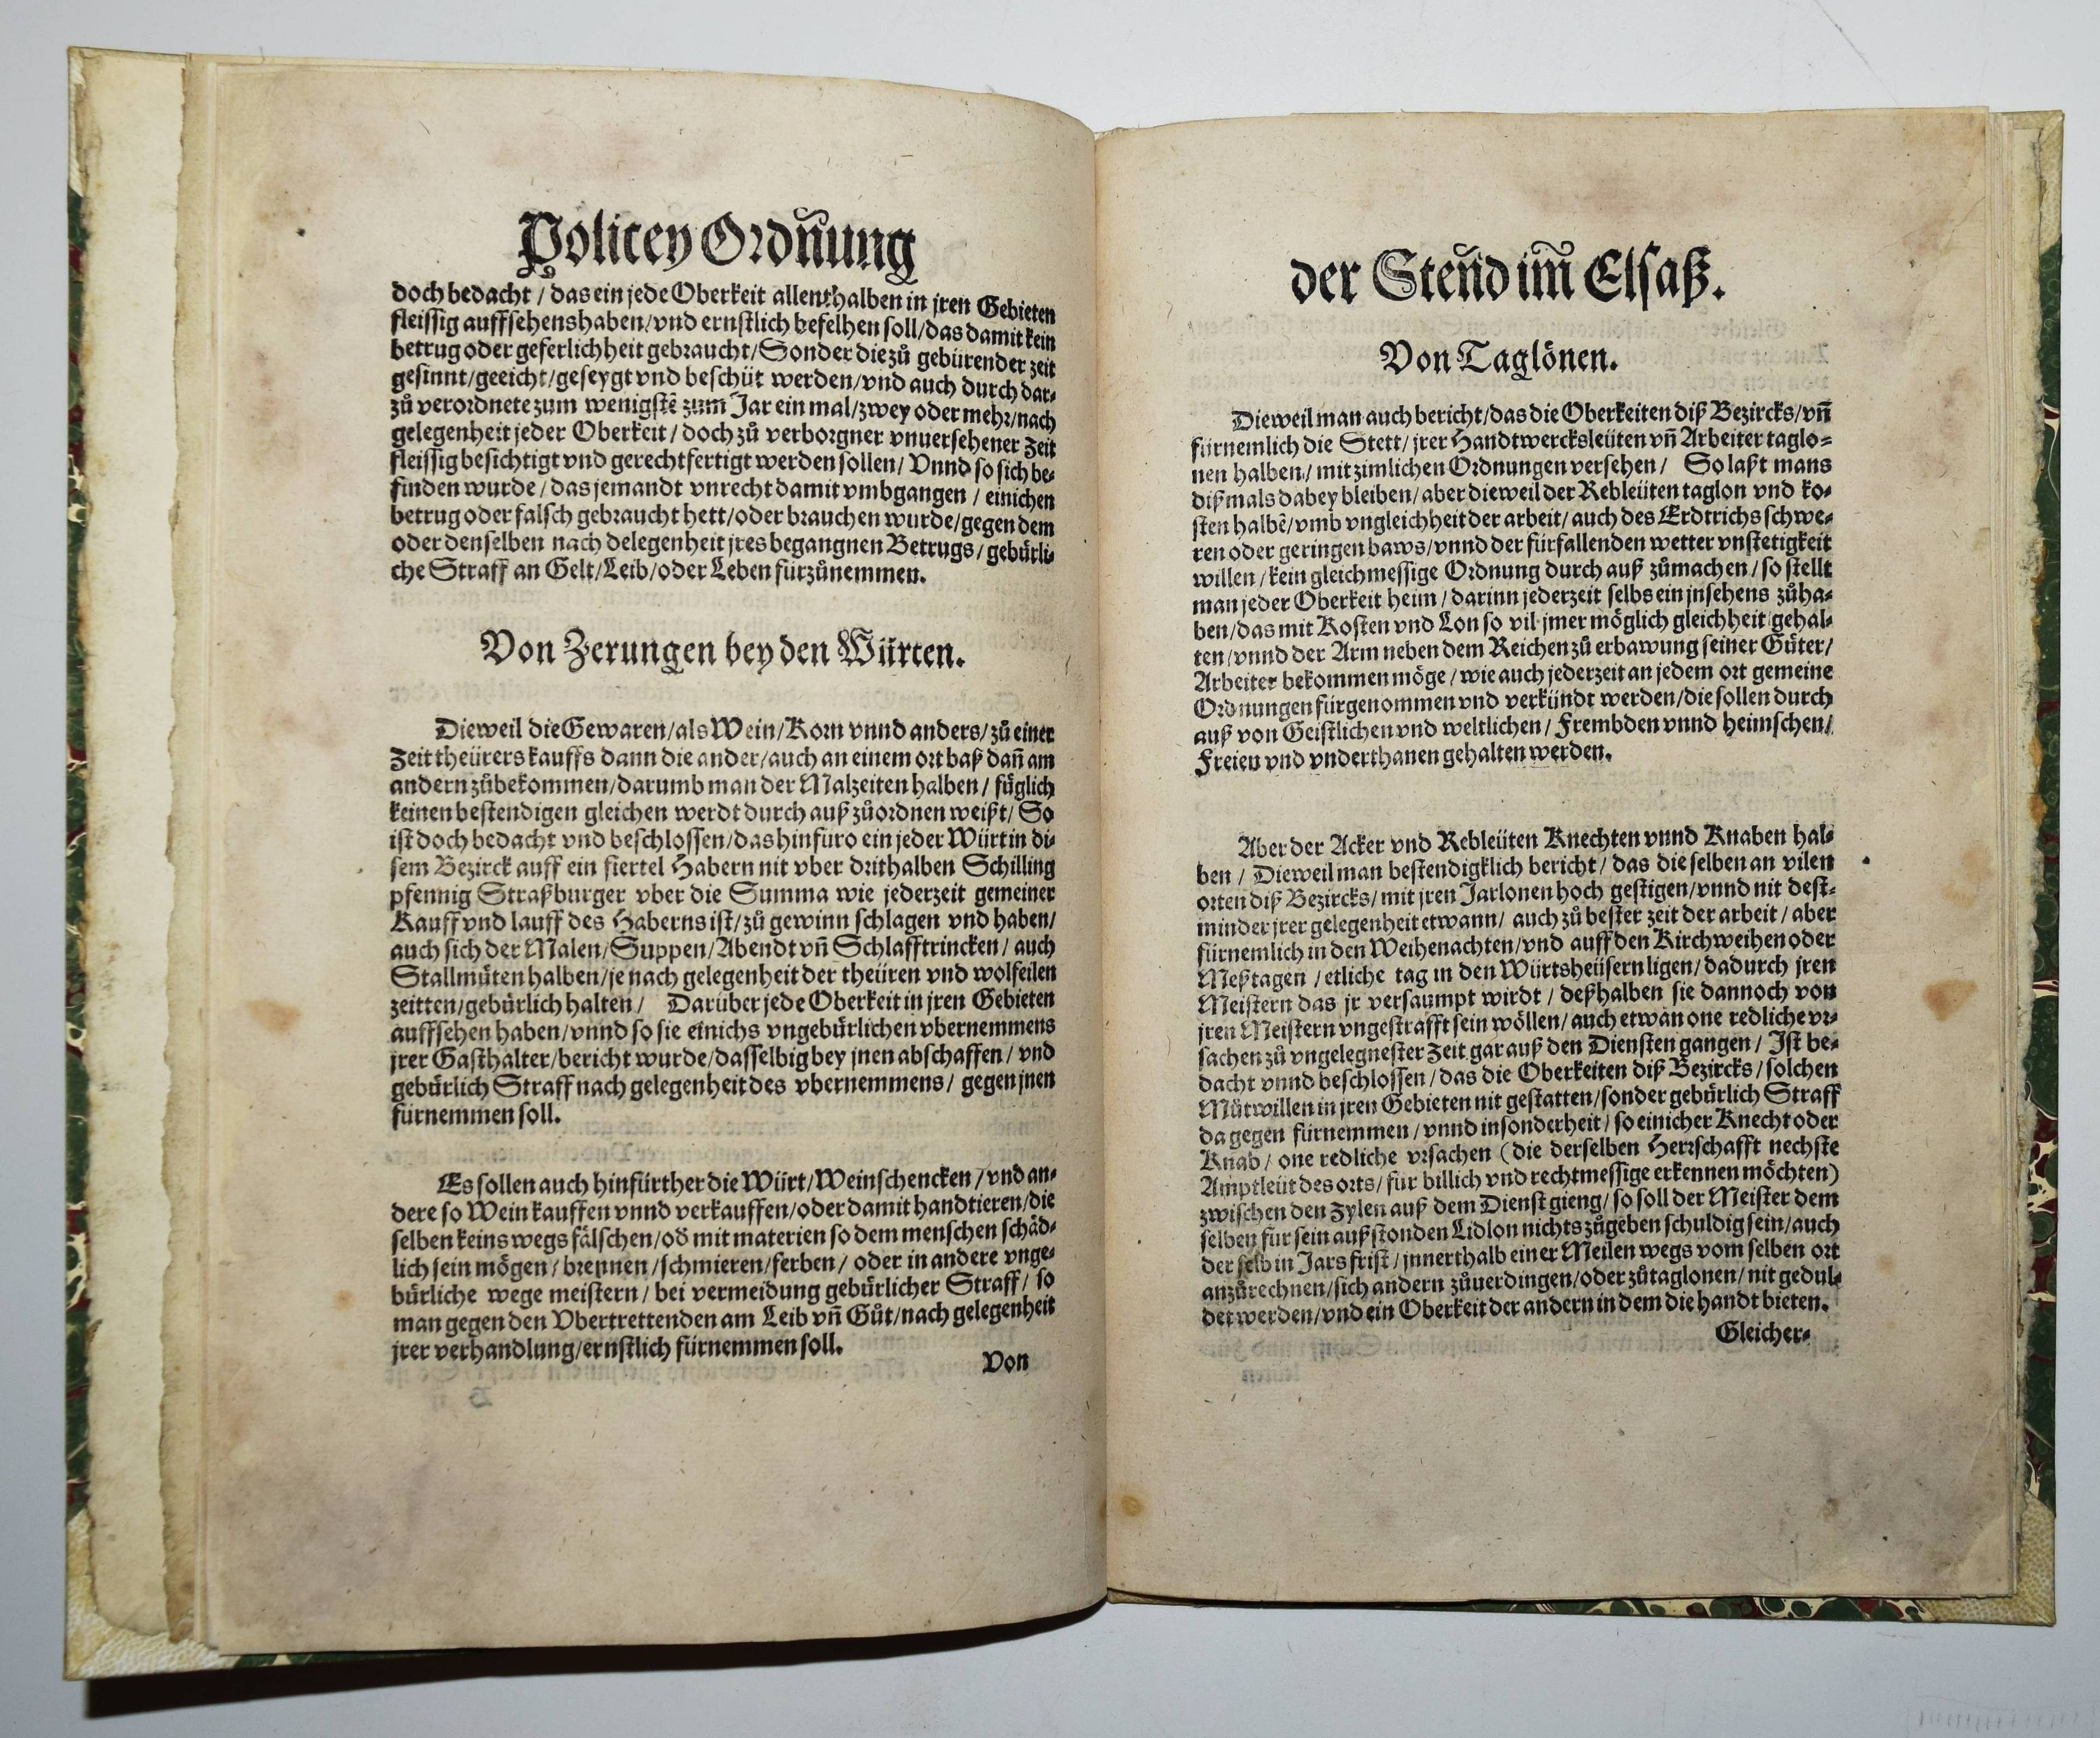 Policey Ordn̄ung
doch bedacht / das ein jede Oberkeit allenthalben in jren Gebieten
fleissig auffsehens haben/vnd ernstlich befelhen soll/das damit kein
betrug oder geferlichheit gebraucht/Sonder die zů gebürender zeit
gesinnt/geeicht/geseygt vnd beschüt werden/vnd auch durch dar⸗
zů verordnete zum wenigstē zum Jar ein mal/zwey oder mehr/nach
gelegenheit jeder Oberkeit / doch zů verborgner vnuersehener Zeit
fleissig besichtigt vnd gerechtfertigt werden sollen/ Vnnd so sich be⸗
finden wurde / das jemandt vnrecht damit vmbgangen / einichen
betrug oder falsch gebraucht hett/oder brauchen wurde/gegen dem
oder denselben nach delegenheit jres begangnen Betrugs / gebürli⸗
che Straff an Gelt/Leib/oder Leben fürzůnemmen.
Von Zerungen bey den Würten.
Dieweil die Gewaren/als Wein/Korn vnnd anders/ zů einer
Zeit theürers kauffs dann die ander/auch an einem ort baß dañ am
andern zůbekommen/darumb man der Malzeiten halben / füglich
keinen bestendigen gleichen werdt durch auß zůordnen weißt/ So
ist doch bedacht vnd beschlossen/das hinfüro ein jeder Würt in di⸗
sem Bezirck auff ein fiertel Habern nit vber drithalben Schilling
pfennig Straßburger vber die Summa wie jederzeit gemeiner
Kauff vnd lauff des Haberns ist/zů gewinn schlagen vnd haben/
auch sich der Malen/Suppen/Abendt vñ Schlafftrincken / auch
Stallmüten halben/je nach gelegenheit der theüren vnd wolfeilen
zeitten/gebürlich halten / Darüber jede Oberkeit in jren Gebieten
auffsehen haben/vnnd so sie einichs vngebürlichen vbernemmens
jrer Gasthalter/bericht wurde/dasselbig bey jnen abschaffen / vnd
gebürlich Straff nach gelegenheit des vbernemmens / gegen jnen
fürnemmen soll.
Es sollen auch hinfürther die Würt/Weinschencken / vnd an⸗
dere so Wein kauffen vnnd verkauffen/oder damit handtieren/die
selben keins wegs fälschen/od̄ mit materien so dem menschen schäd⸗
lich sein mögen / brennen /schmieren/ferben / oder in andere vnge⸗
bürliche wege meistern / bei vermeidung gebürlicher Straff / so
man gegen den Vbertrettenden am Leib vñ Gůt/nach gelegenheit
jrer verhandlung/ernstlich fürnemmen soll.
Von
der Steñd im̄ Elsaß.
Von Taglönen.
Dieweil man auch bericht/das die Oberkeiten diß Bezircks/vñ
fürnemlich die Stett/ jrer Handtwercksleüten vñ Arbeiter taglo⸗
nen halben / mit zimlichen Ordnungen versehen / So laßt mans
dißmals dabey bleiben/ aber dieweil der Rebleüten taglon vnd ko⸗
sten halbē/vmb vngleichheit der arbeit/ auch des Erdtrichs schwe⸗
ren oder geringen baws/vnnd der fürfallenden wetter vnstetigkeit
willen / kein gleichmessige Ordnung durch auß zůmachen / so stellt
man jeder Oberkeit heim / darinn jederzeit selbs ein jnsehens zůha⸗
ben/das mit Kosten vnd Lon so vil jmer möglich gleichheit gehal⸗
ten/vnnd der Arm neben dem Reichen zů erbawung seiner Güter/
Arbeiter bekommen möge / wie auch jederzeit an jedem ort gemeine
Ordnungen fürgenommen vnd verkündt werden/die sollen durch
auß von Geistlichen vnd weltlichen / Frembden vnnd heimschen/
Freien vnd vnderthanen gehalten werden.
Aber der Acker vnd Rebleüten Knechten vnnd Knaben hal⸗
ben / Dieweil man bestendigklich bericht / das die selben an vilen
orten diß Bezircks/ mit jren Jarlonen hoch gestigen/vnnd nit dest⸗
minder jrer gelegenheit etwann/ auch zů bester zeit der arbeit / aber
fürnemlich in den Weihenachten/vnd auff den Kirchweihen oder
Meßtagen / etliche tag in den Würtsheüsern ligen/dadurch jren
Meistern das jr versaumpt wirdt / deßhalben sie dannoch von
jren Meistern vngestrafft sein wöllen/ auch etwan one redliche vr⸗
sachen zů vngelegnester Zeit gar auß den Diensten gangen / Ist be⸗
dacht vnnd beschlossen / das die Oberkeiten diß Bezircks/ solchen
Můtwillen in jren Gebieten nit gestatten/sonder gebürlich Straff
da gegen fürnemmen / vnnd insonderheit / so einicher Knecht oder
Knab / one redliche vrsachen (die derselben Herrschafft nechste
Amptleüt des orts/ für billich vnd rechtmessige erkennen möchten)
zwischen den Zylen auß dem Dienst gieng/ so soll der Meister dem
selben für sein außstonden Lidlon nichts zůgeben schuldig sein/auch
der selb in Jars frist / jnnerthalb einer Meilen wegs vom selben ort
anzůrechnen/sich andern zůuerdingen/oder zůtaglonen / nit gedul⸗
det werden/vnd ein Oberkeit der andern in dem die handt bieten.
Gleicher⸗